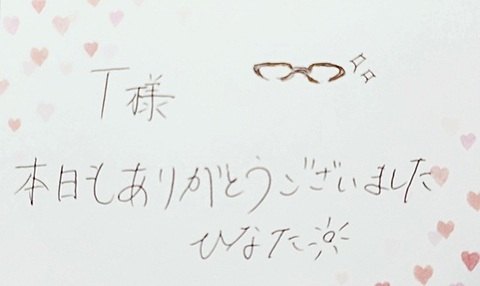 T様
本日もありがとうございました
ひなた